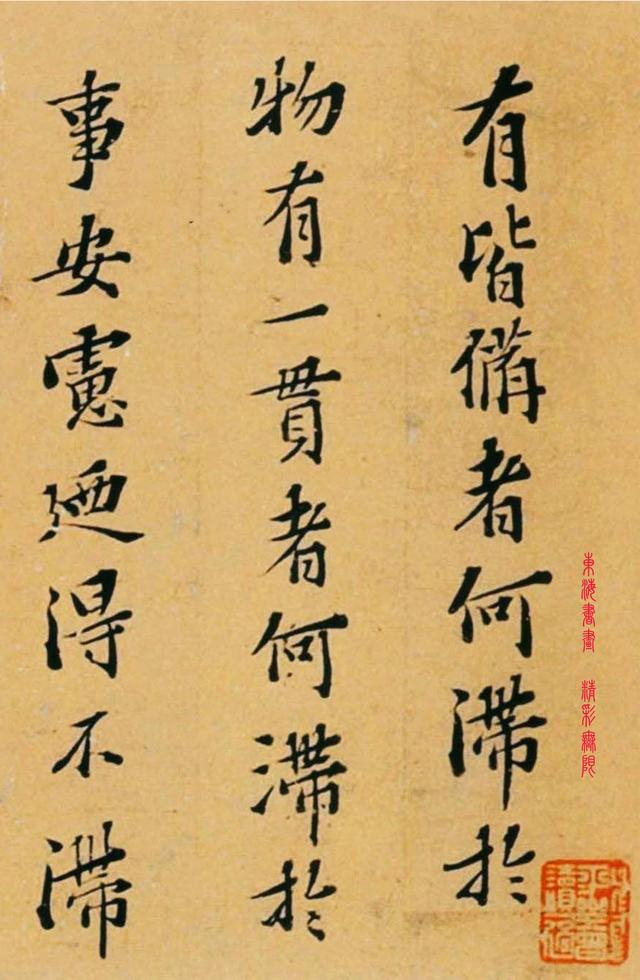 有皆備者何滯於
物有一貫者何滯於
事安慮迺得不滯
東海書畫 精彩無限